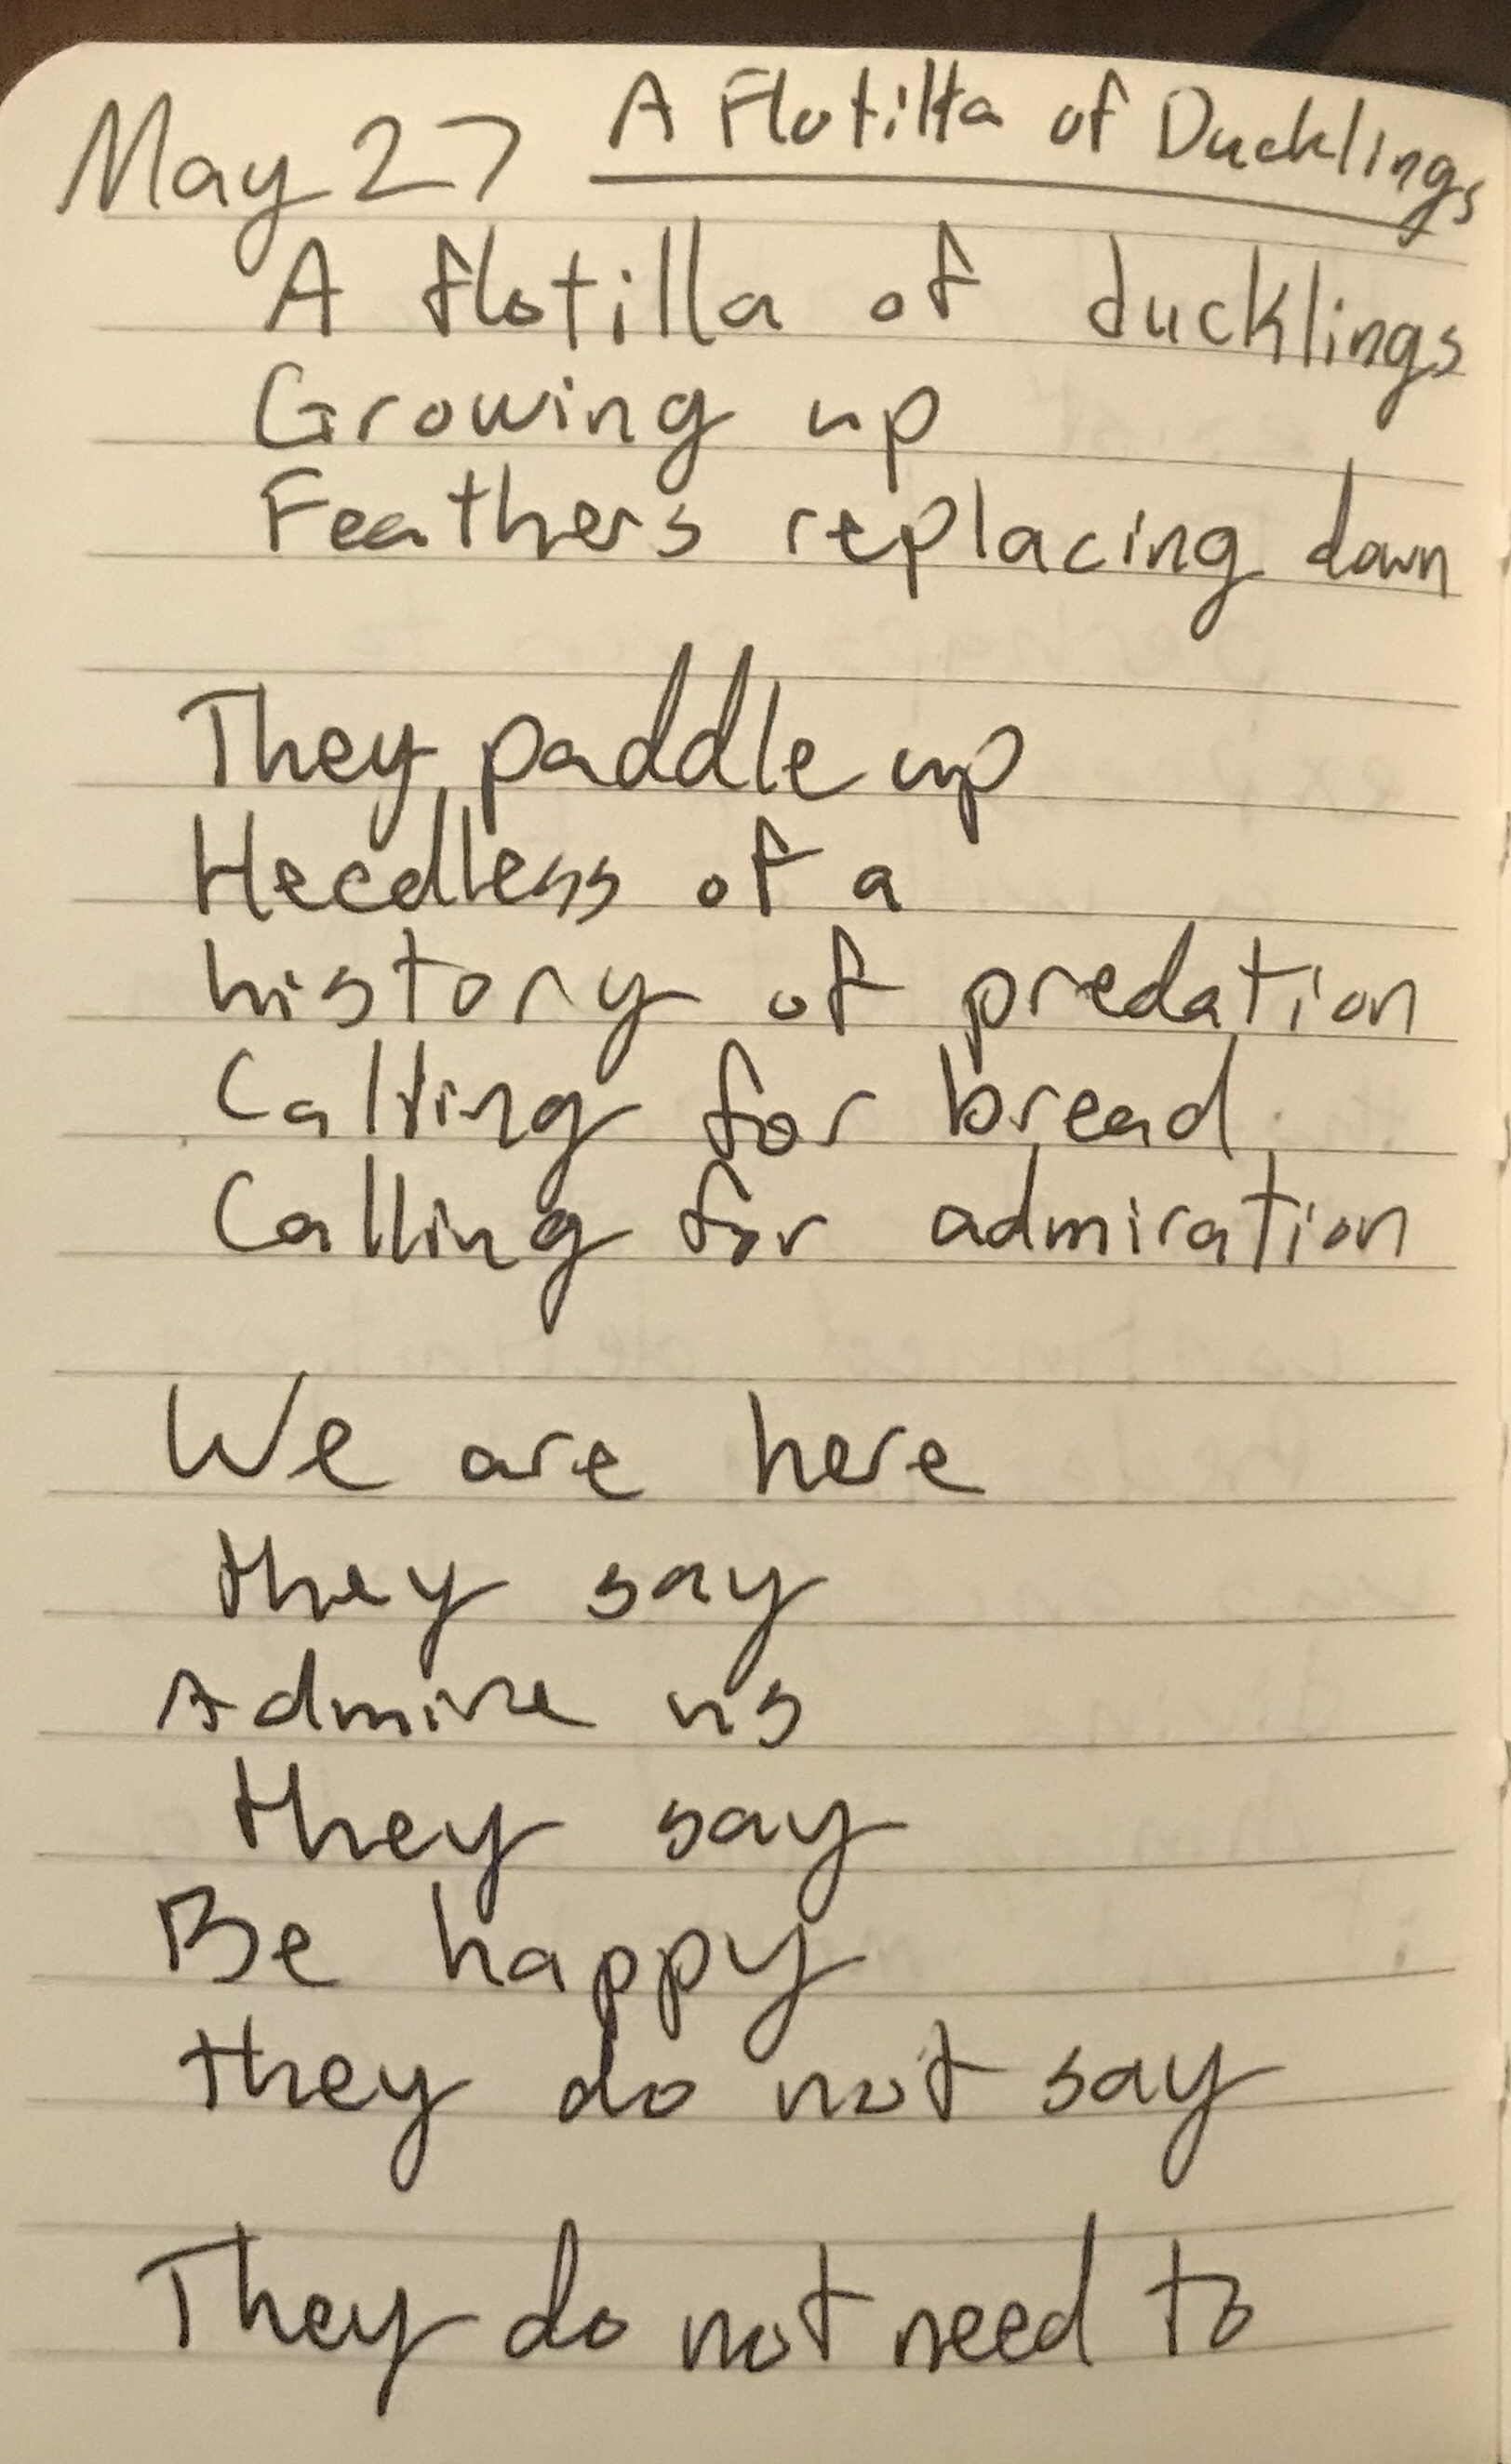 May 27 A Flotilla of Ducklings
A flotilla of ducklings
Growing up
Feathers replacing down
They paddle up
Heedless of a
history of predation
Calling for bread
Calling for admiration
We are here
they say
Admire us
they say
Be happy
they do not say
They do not need to